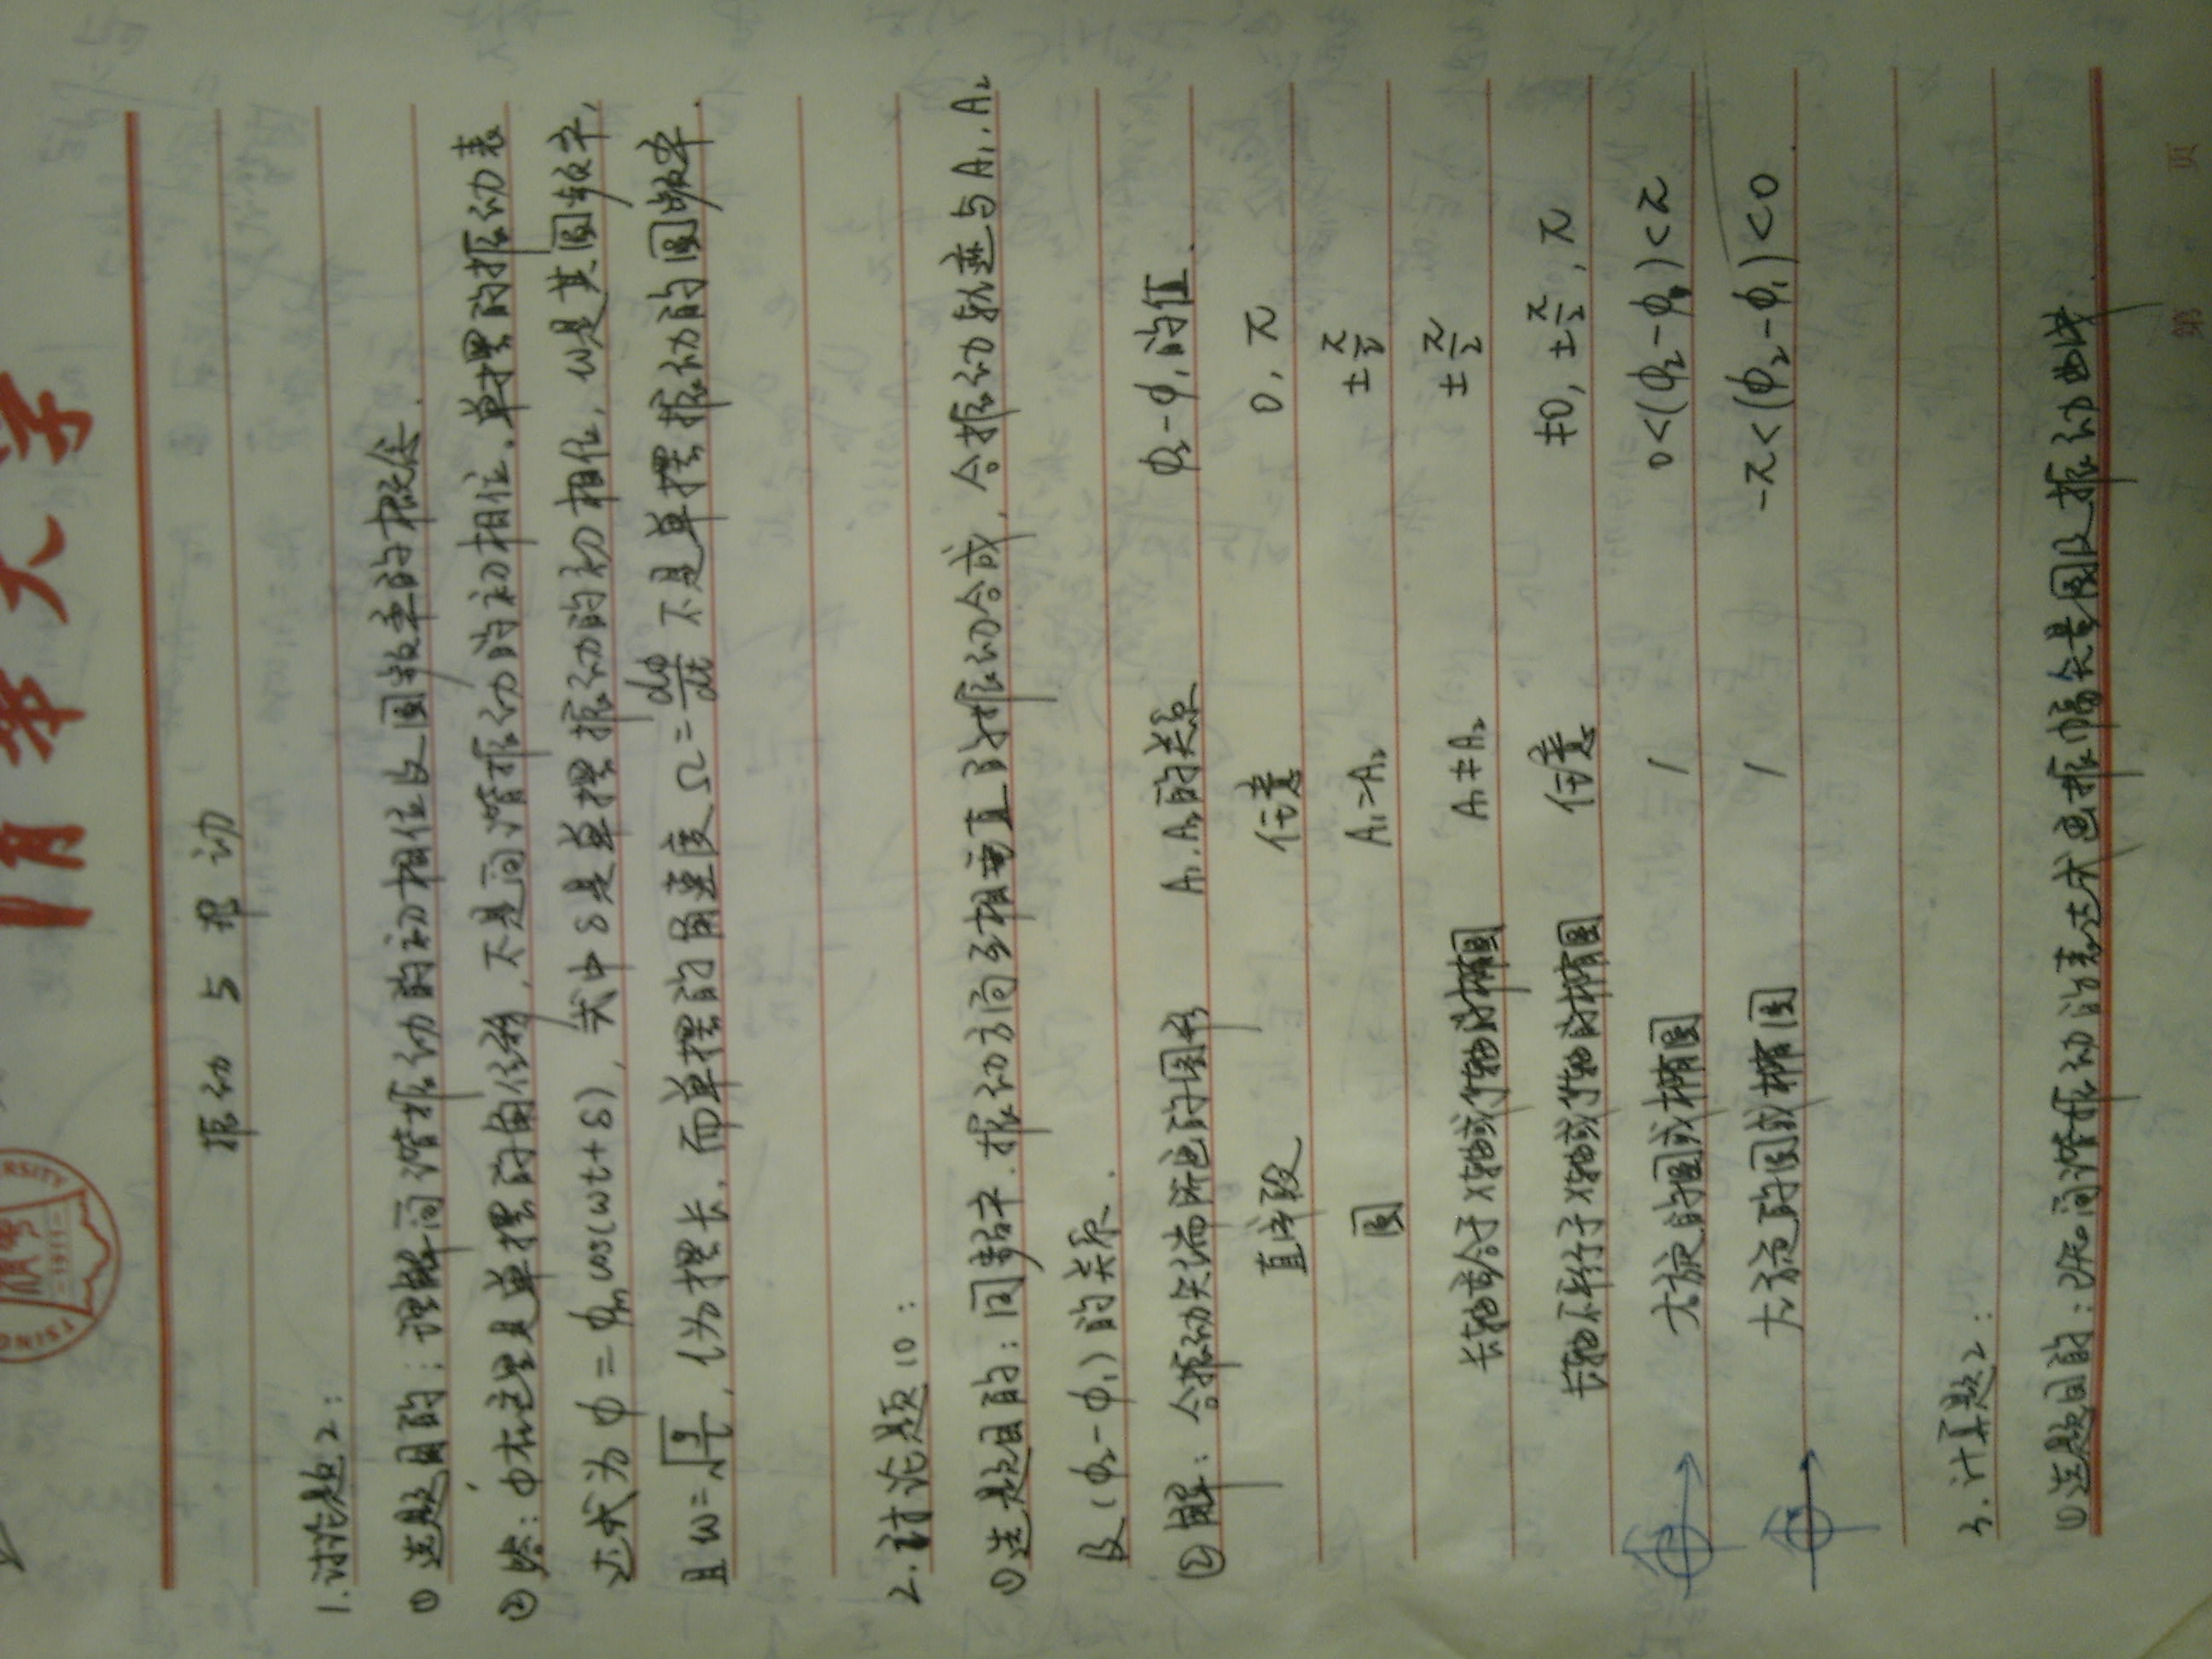 清华大学
-1911-
振动与波动
1.讨论题2:
① 选题目的:理解简谐振动的初相位及圆频率的概念.
② 答:φ在这里是单摆的角位移,不是简谐振动的初相位。单摆的振动表
达式为 φ = φm cos(ωt+δ),式中δ是单摆振动的初相位,ω是其圆频率,
且 ω=√(g/l),l为摆长.而单摆的角速度 Ω = dφ/dt 不是单摆振动的圆频率.
2.讨论题10:
① 选题目的:同频率.振动方向互相垂直的振动合成,合振动轨迹与A₁.A₂
及(φ₂-φ₁)的关系.
② 解:合振动矢端所画的图形 A₁.A₂的关系 φ₂-φ₁的值.
直线段 任意 0, π
圆 A₁=A₂ ±π/2
长轴重合于x轴或y轴的椭圆 A₁≠A₂ ±π/2
长轴不平行于x轴或y轴的椭圆 任意 ≠0, ±π/2, π
右旋的圆或椭圆 / 0<(φ₂-φ₁)<π
左旋的圆或椭圆 / -π<(φ₂-φ₁)<0.
3.计算题2:
① 选题目的:已知简谐振动的表达式画振幅矢量图及振动曲线.
第 页